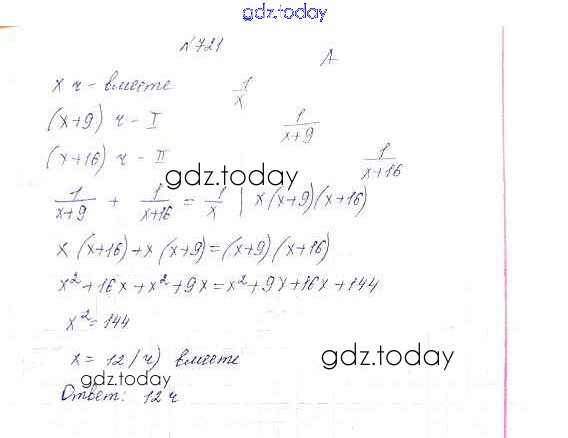 gdz.today
№721
А
x ч - вместе 1/x
(x+9) ч - I 1/(x+9)
(x+16) ч - II 1/(x+16)
gdz.today
1/(x+9) + 1/(x+16) = 1/x | x(x+9)(x+16)
x(x+16)+x(x+9)=(x+9)(x+16)
x²+16x+x²+9x=x²+9x+16x+144
x²=144
x = 12 (ч) вместе
gdz.today
gdz.today
Ответ: 12 ч